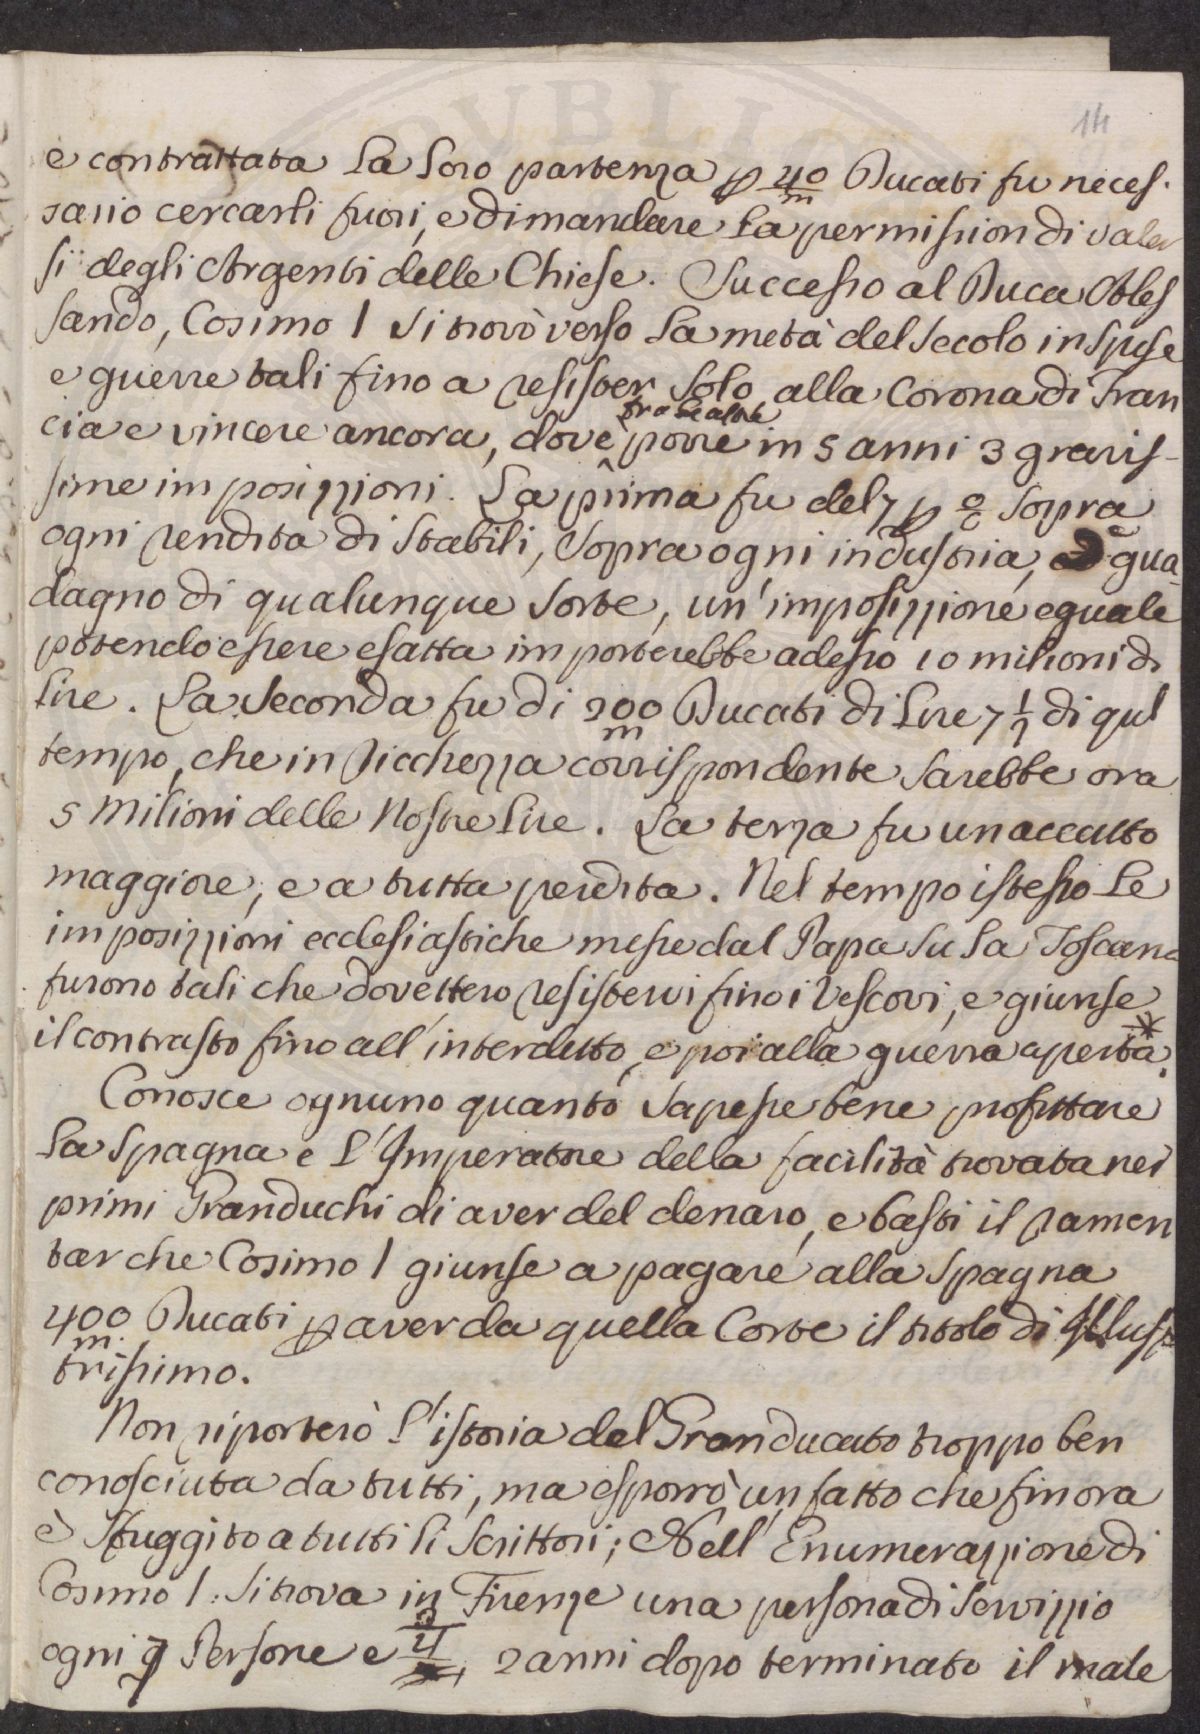 14
e contrattata la loro partenza p 40/m Ducati fu neces-
sario cercarli fuori, e dimandare la permission di valer
si degli Argenti delle Chiese. Successo al Duca Ales
sando, Cosimo I si trovò verso la metà del secolo in spese
e guerre tali fino a resister solo alla Corona di Fran
cia e vincere ancora, dovè porre fra le altre in 5 anni 3 gravis-
sime imposizzioni. La pîima fu del 7 p % sopra
ogni rendita di stabili, sopra ogni industria, e gua-
dagno di qualunque sorte, un'imposizzione eguale
potendo essere esatta importerebbe adesso 10 milioni di
lire. La seconda fu di 200/m Ducati di lire 7 1/2 di qul
tempo, che in ricchezza corrispondente sarebbe ora
5 Milioni delle Nostre lire. La terza fu un accatto
maggiore, e a tutta perdita. Nel tempo istesso le
imposizzioni ecclesiastiche messe dal Papa su la Toscana
furono tali che dovettero resistervi fino i Vescovi, e giunse
il contrasto fino all'interdetto, e poi alla guerra aperta*.
Conosce ognuno quanto sapesse bene profittare
la Spagna e l'Imperatore della facilità trovata nei
primi Granduchi di aver del denaro, e basti il ramen
tar che Cosimo I giunse a pagare alla Spagna
400/m Ducati p aver da quella Corte il titolo di Illus
trissimo.
Non riporterò l'istoria del Granducato troppo ben
conosciuta da tutti, ma esporrò un fatto che finora
è sfuggito a tutti li scrittori; Nell'Enumerazzione di
Cosimo I. si trova in Firenze una persona di servizzio
ogni 7 Persone e 2 anni dopo terminato il male